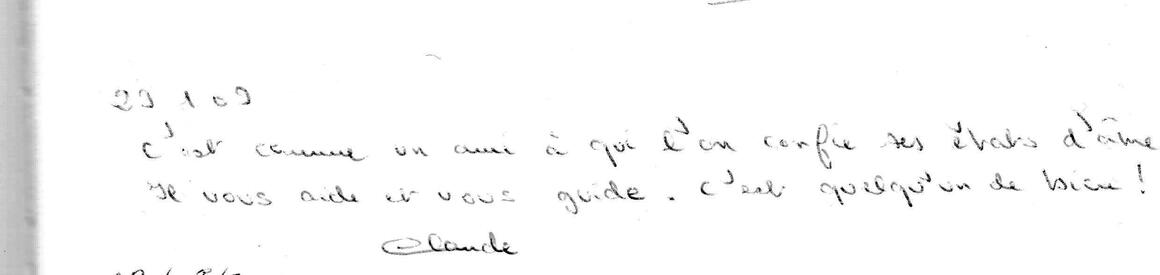 29 1 09
C'est comme un ami à qui l'on confie ses états d'âme
Il vous aide et vous guide. C'est quelqu'un de bien !
Claude